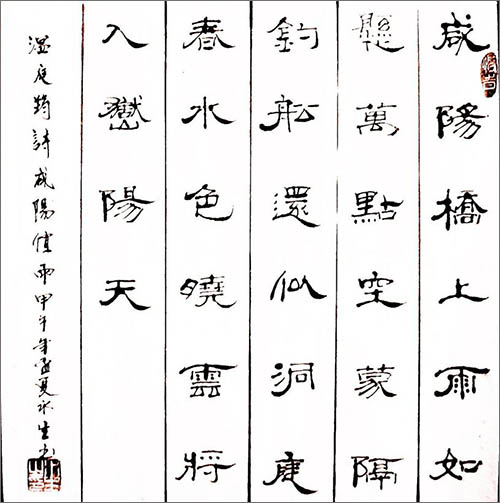 咸陽橋上雨如
懸萬點空蒙隔
釣舩還似洞庭
春水色曉雲將
入嶽陽天
温庭筠詩咸陽值雨甲午年孟夏永生书